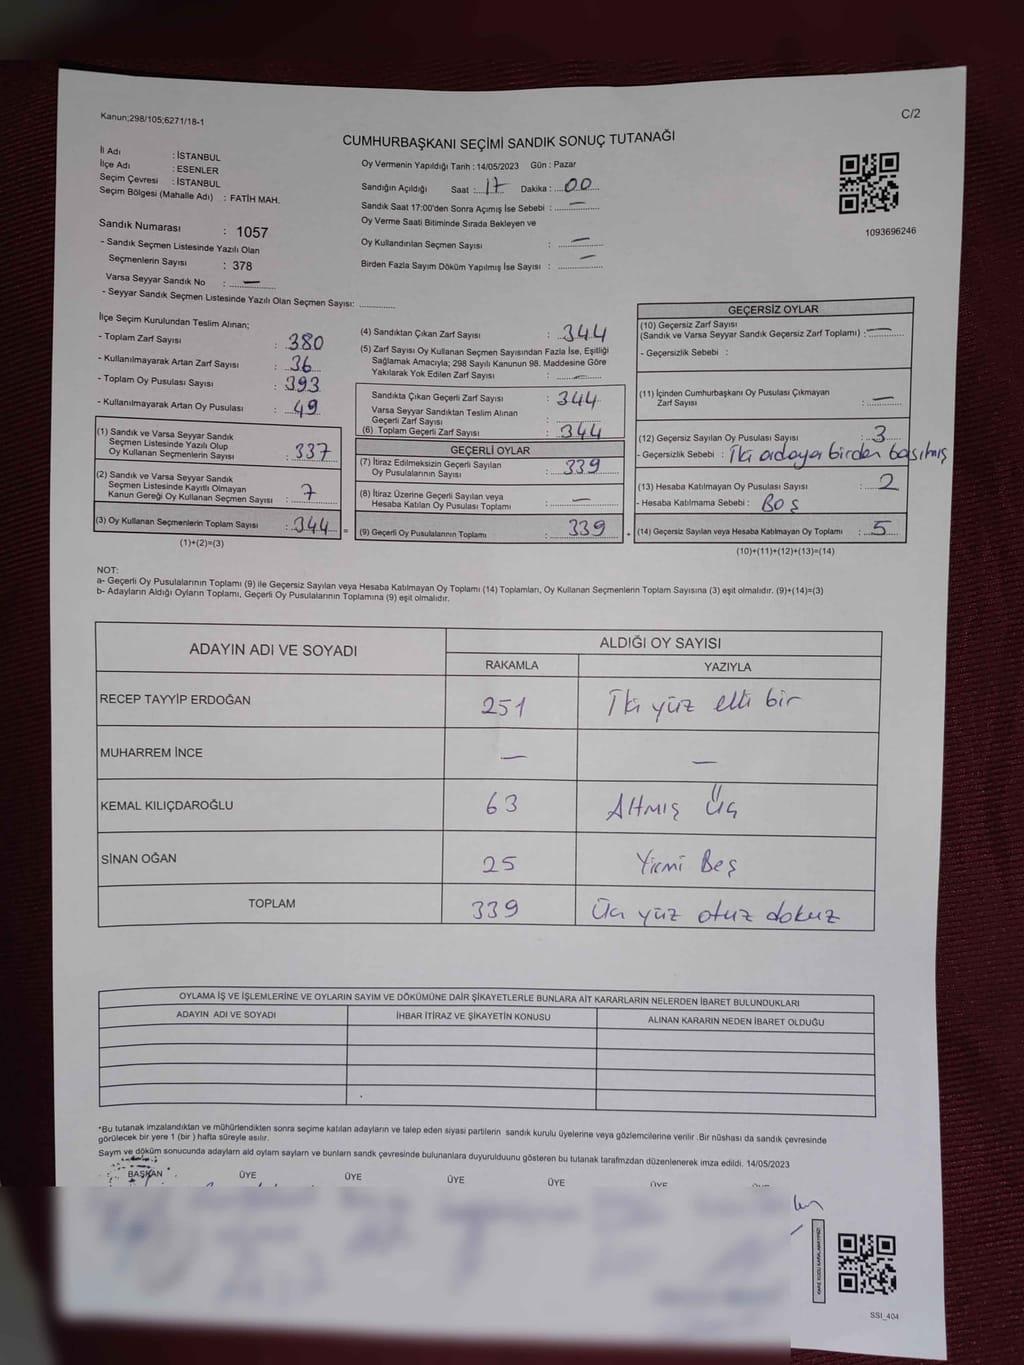 Kanun;298/105;6271/18-1
C/2
CUMHURBAŞKANI SEÇİMİ SANDIK SONUÇ TUTANAĞI
İl Adı : İSTANBUL
İlçe Adı : ESENLER
Seçim Çevresi : İSTANBUL
Seçim Bölgesi (Mahalle Adı) : FATİH MAH.
Sandık Numarası : 1057
- Sandık Seçmen Listesinde Yazılı Olan
Seçmenlerin Sayısı : 378
Varsa Seyyar Sandık No : —
- Seyyar Sandık Seçmen Listesinde Yazılı Olan Seçmen Sayısı: ............
Oy Vermenin Yapıldığı Tarih : 14/05/2023 Gün : Pazar
Sandığın Açıldığı Saat : 17 Dakika : 00
Sandık Saat 17:00'den Sonra Açımış İse Sebebi : —
Oy Verme Saati Bitiminde Sırada Bekleyen ve
Oy Kullandırılan Seçmen Sayısı : —
Birden Fazla Sayım Döküm Yapılmış İse Sayısı : —
1093696246
İlçe Seçim Kurulundan Teslim Alınan;
- Toplam Zarf Sayısı : 380
- Kullanılmayarak Artan Zarf Sayısı : 36
- Toplam Oy Pusulası Sayısı : 393
- Kullanılmayarak Artan Oy Pusulası : 49
(1) Sandık ve Varsa Seyyar Sandık
Seçmen Listesinde Yazılı Olup
Oy Kullanan Seçmenlerin Sayısı : 337
(2) Sandık ve Varsa Seyyar Sandık
Seçmen Listesinde Kayıtlı Olmayan
Kanun Gereği Oy Kullanan Seçmen Sayısı : 7
(3) Oy Kullanan Seçmenlerin Toplam Sayısı : 344 =
(1)+(2)=(3)
(4) Sandıktan Çıkan Zarf Sayısı : 344
(5) Zarf Sayısı Oy Kullanan Seçmen Sayısından Fazla İse, Eşitliği
Sağlamak Amacıyla; 298 Sayılı Kanunun 98. Maddesine Göre
Yakılarak Yok Edilen Zarf Sayısı : —
Sandıkta Çıkan Geçerli Zarf Sayısı : 344
Varsa Seyyar Sandıktan Teslim Alınan
Geçerli Zarf Sayısı : ............
(6) Toplam Geçerli Zarf Sayısı : 344
GEÇERLİ OYLAR
(7) İtiraz Edilmeksizin Geçerli Sayılan
Oy Pusulalarının Sayısı : 339
(8) İtiraz Üzerine Geçerli Sayılan veya
Hesaba Katılan Oy Pusulası Toplamı : —
(9) Geçerli Oy Pusulalarının Toplamı : 339 +
GEÇERSİZ OYLAR
(10) Geçersiz Zarf Sayısı
(Sandık ve Varsa Seyyar Sandık Geçersiz Zarf Toplamı) : —
- Geçersizlik Sebebi :
(11) İçinden Cumhurbaşkanı Oy Pusulası Çıkmayan
Zarf Sayısı : —
(12) Geçersiz Sayılan Oy Pusulası Sayısı : 3
- Geçersizlik Sebebi : İki adaya birden basılmış
(13) Hesaba Katılmayan Oy Pusulası Sayısı : 2
- Hesaba Katılmama Sebebi : Boş
(14) Geçersiz Sayılan veya Hesaba Katılmayan Oy Toplamı : 5
(10)+(11)+(12)+(13)=(14)
NOT:
a- Geçerli Oy Pusulalarının Toplamı (9) ile Geçersiz Sayılan veya Hesaba Katılmayan Oy Toplamı (14) Toplamları, Oy Kullanan Seçmenlerin Toplam Sayısına (3) eşit olmalıdır. (9)+(14)=(3)
b- Adayların Aldığı Oyların Toplamı, Geçerli Oy Pusulalarının Toplamına (9) eşit olmalıdır.
ADAYIN ADI VE SOYADI
ALDIĞI OY SAYISI
RAKAMLA YAZIYLA
RECEP TAYYİP ERDOĞAN 251 İki yüz elli bir
MUHARREM İNCE — —
KEMAL KILIÇDAROĞLU 63 Altmış Üç
SİNAN OĞAN 25 Yirmi Beş
TOPLAM 339 Üç yüz otuz dokuz
OYLAMA İŞ VE İŞLEMLERİNE VE OYLARIN SAYIM VE DÖKÜMÜNE DAİR ŞİKAYETLERLE BUNLARA AİT KARARLARIN NELERDEN İBARET BULUNDUKLARI
ADAYIN ADI VE SOYADI İHBAR İTİRAZ VE ŞİKAYETİN KONUSU ALINAN KARARIN NEDEN İBARET OLDUĞU
*Bu tutanak imzalandıktan ve mühürlendikten sonra seçime katılan adayların ve talep eden siyasi partilerin sandık kurulu üyelerine veya gözlemcilerine verilir .Bir nüshası da sandık çevresinde
görülecek bir yere 1 (bir ) hafta süreyle asılır.
Sayım ve döküm sonucunda adayların ald oylam saylarn ve bunların sandk çevresinde bulunanlara duyurulduunu gösteren bu tutanak tarafmzdan düzenlenerek imza edildi. 14/05/2023
BAŞKAN ÜYE ÜYE ÜYE ÜYE ÜYE ÜYE
KARE KODU KARALAMAYINIZ!
SSI_404